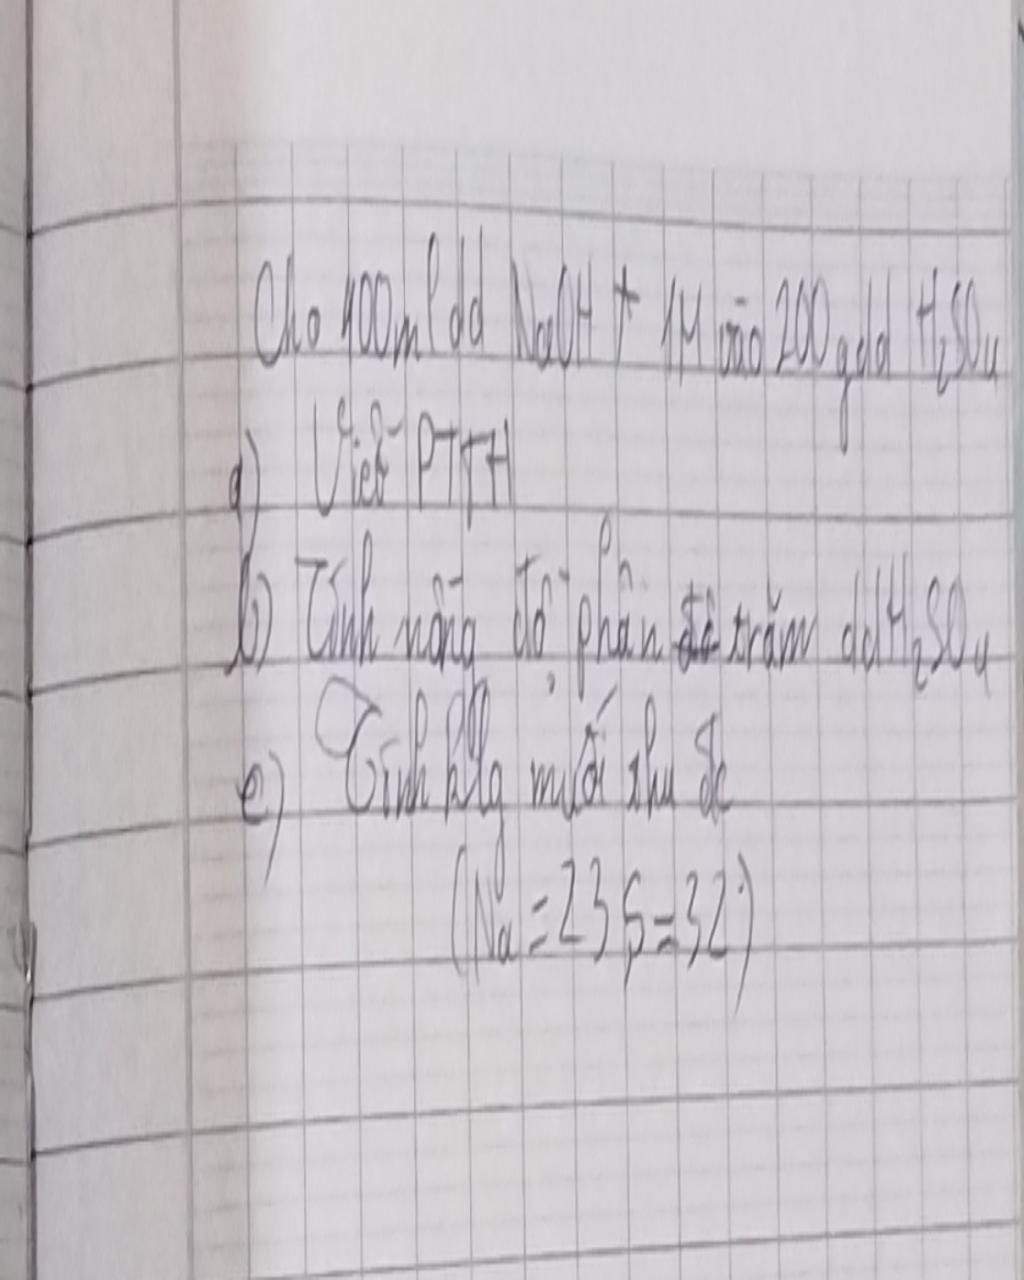 Cho 400ml dd NaOH + 1M vào 200 gdd H₂SO₄
a) Viết PTHH
b) Tính nồng độ phần trăm dd H₂SO₄
c) Tính klg muối thu đc
(Na = 23, S = 32)